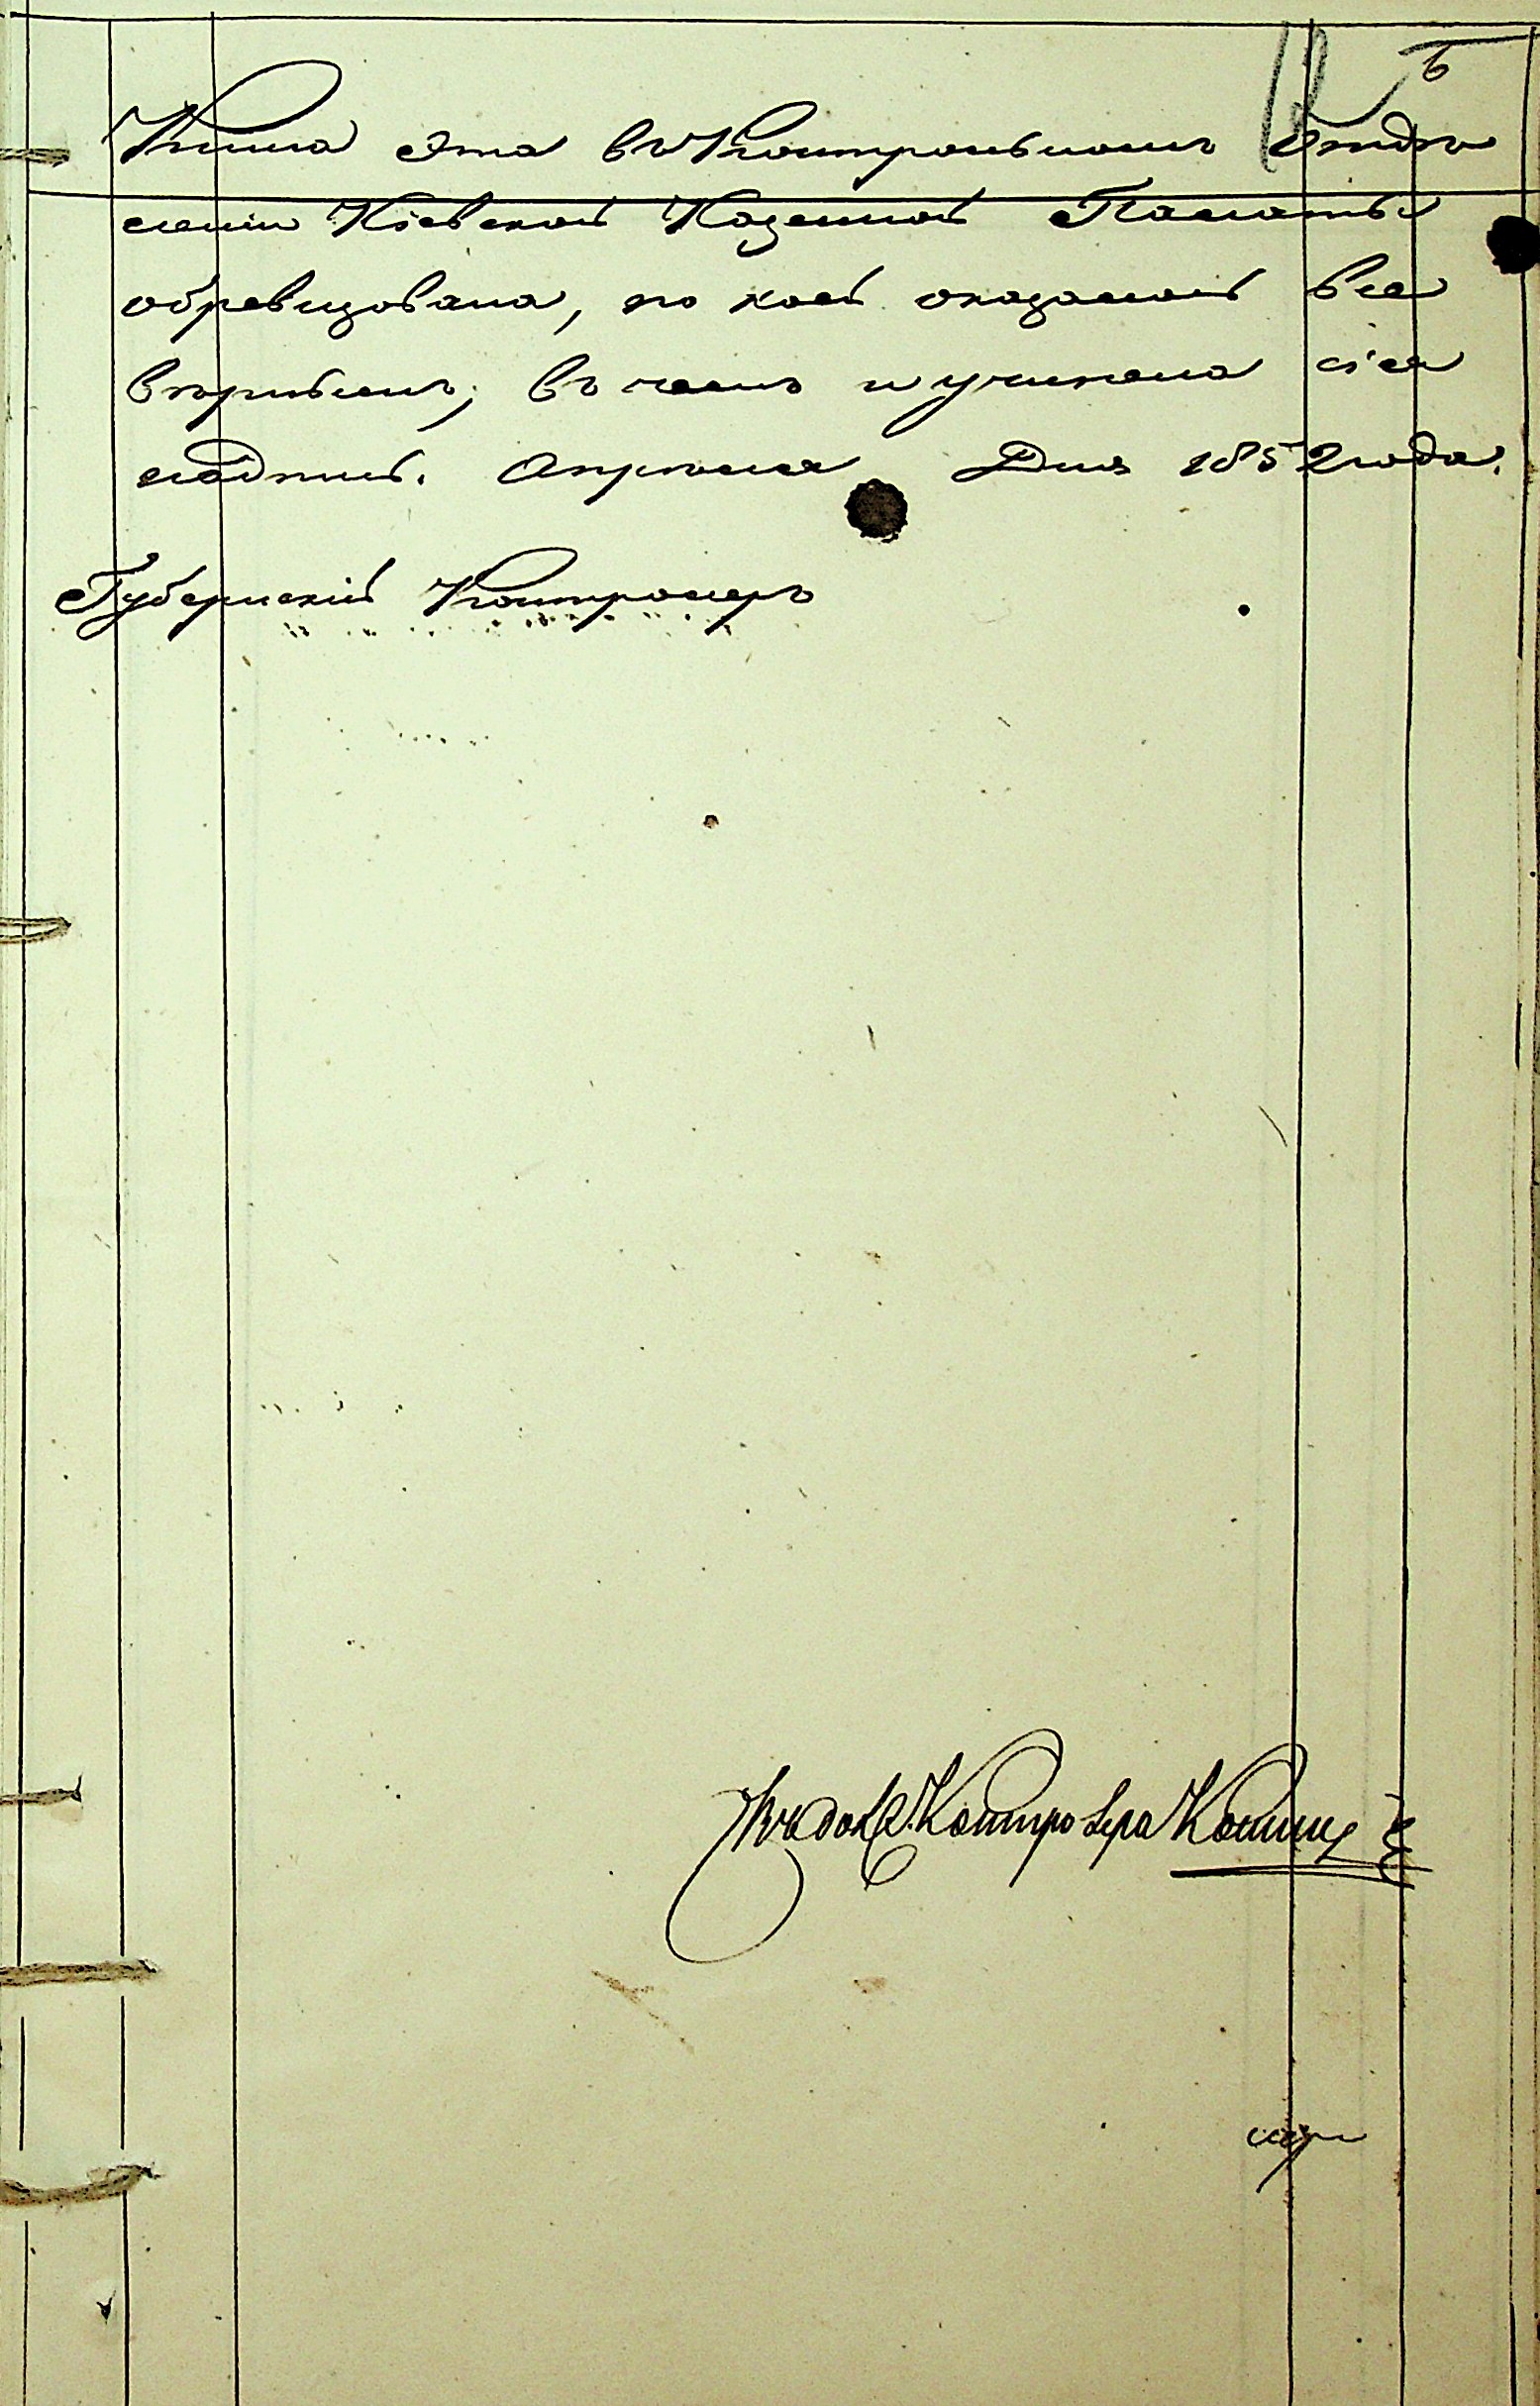 6
Книга эта въ Контрольномъ Отдѣ
леніи Кіевской Казенной Палаты
обревизована, по коей оказалось все
вѣрнымъ; въ чемъ и учинена сія
надпись. Апрѣля Дня 1852 года.
Губернскій Контролеръ
Контролера